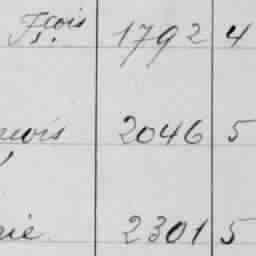 Fçois 1792 4
çois 2046 5
rie 2301 5